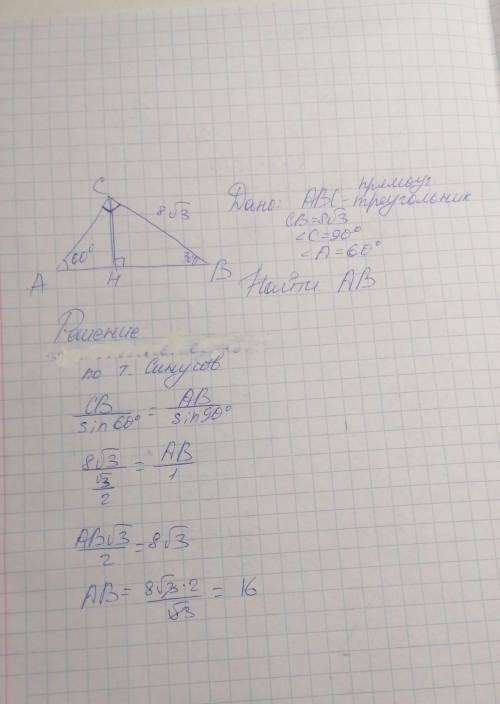 C
8√3
60°
A
H
B
Дано: ABC - прямоуг
треугольник
CB=8√3
∠C=90°
∠A=60°
Найти AB
Решение
по т. Синусов
CB/sin60° = AB/sin90°
8√3/(√3/2) = AB/1
AB√3/2 = 8√3
AB = 8√3·2/√3 = 16